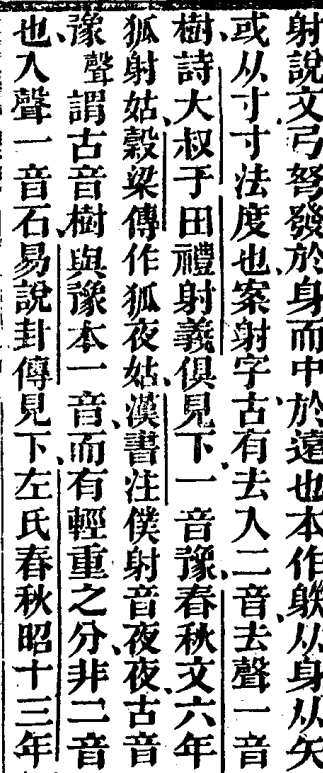 射說文弓弩發於身而中於遠也本作䠶从身从矢
或从寸寸法度也案射字古有去入二音去聲一音
樹詩大叔于田禮射義俱見下一音豫春秋文六年
狐射姑穀梁傳作狐夜姑漢書注僕射音夜夜古音
豫聲謂古音樹與豫本一音而有輕重之分非二音
也入聲一音石易說卦傳見下左氏春秋昭十三年